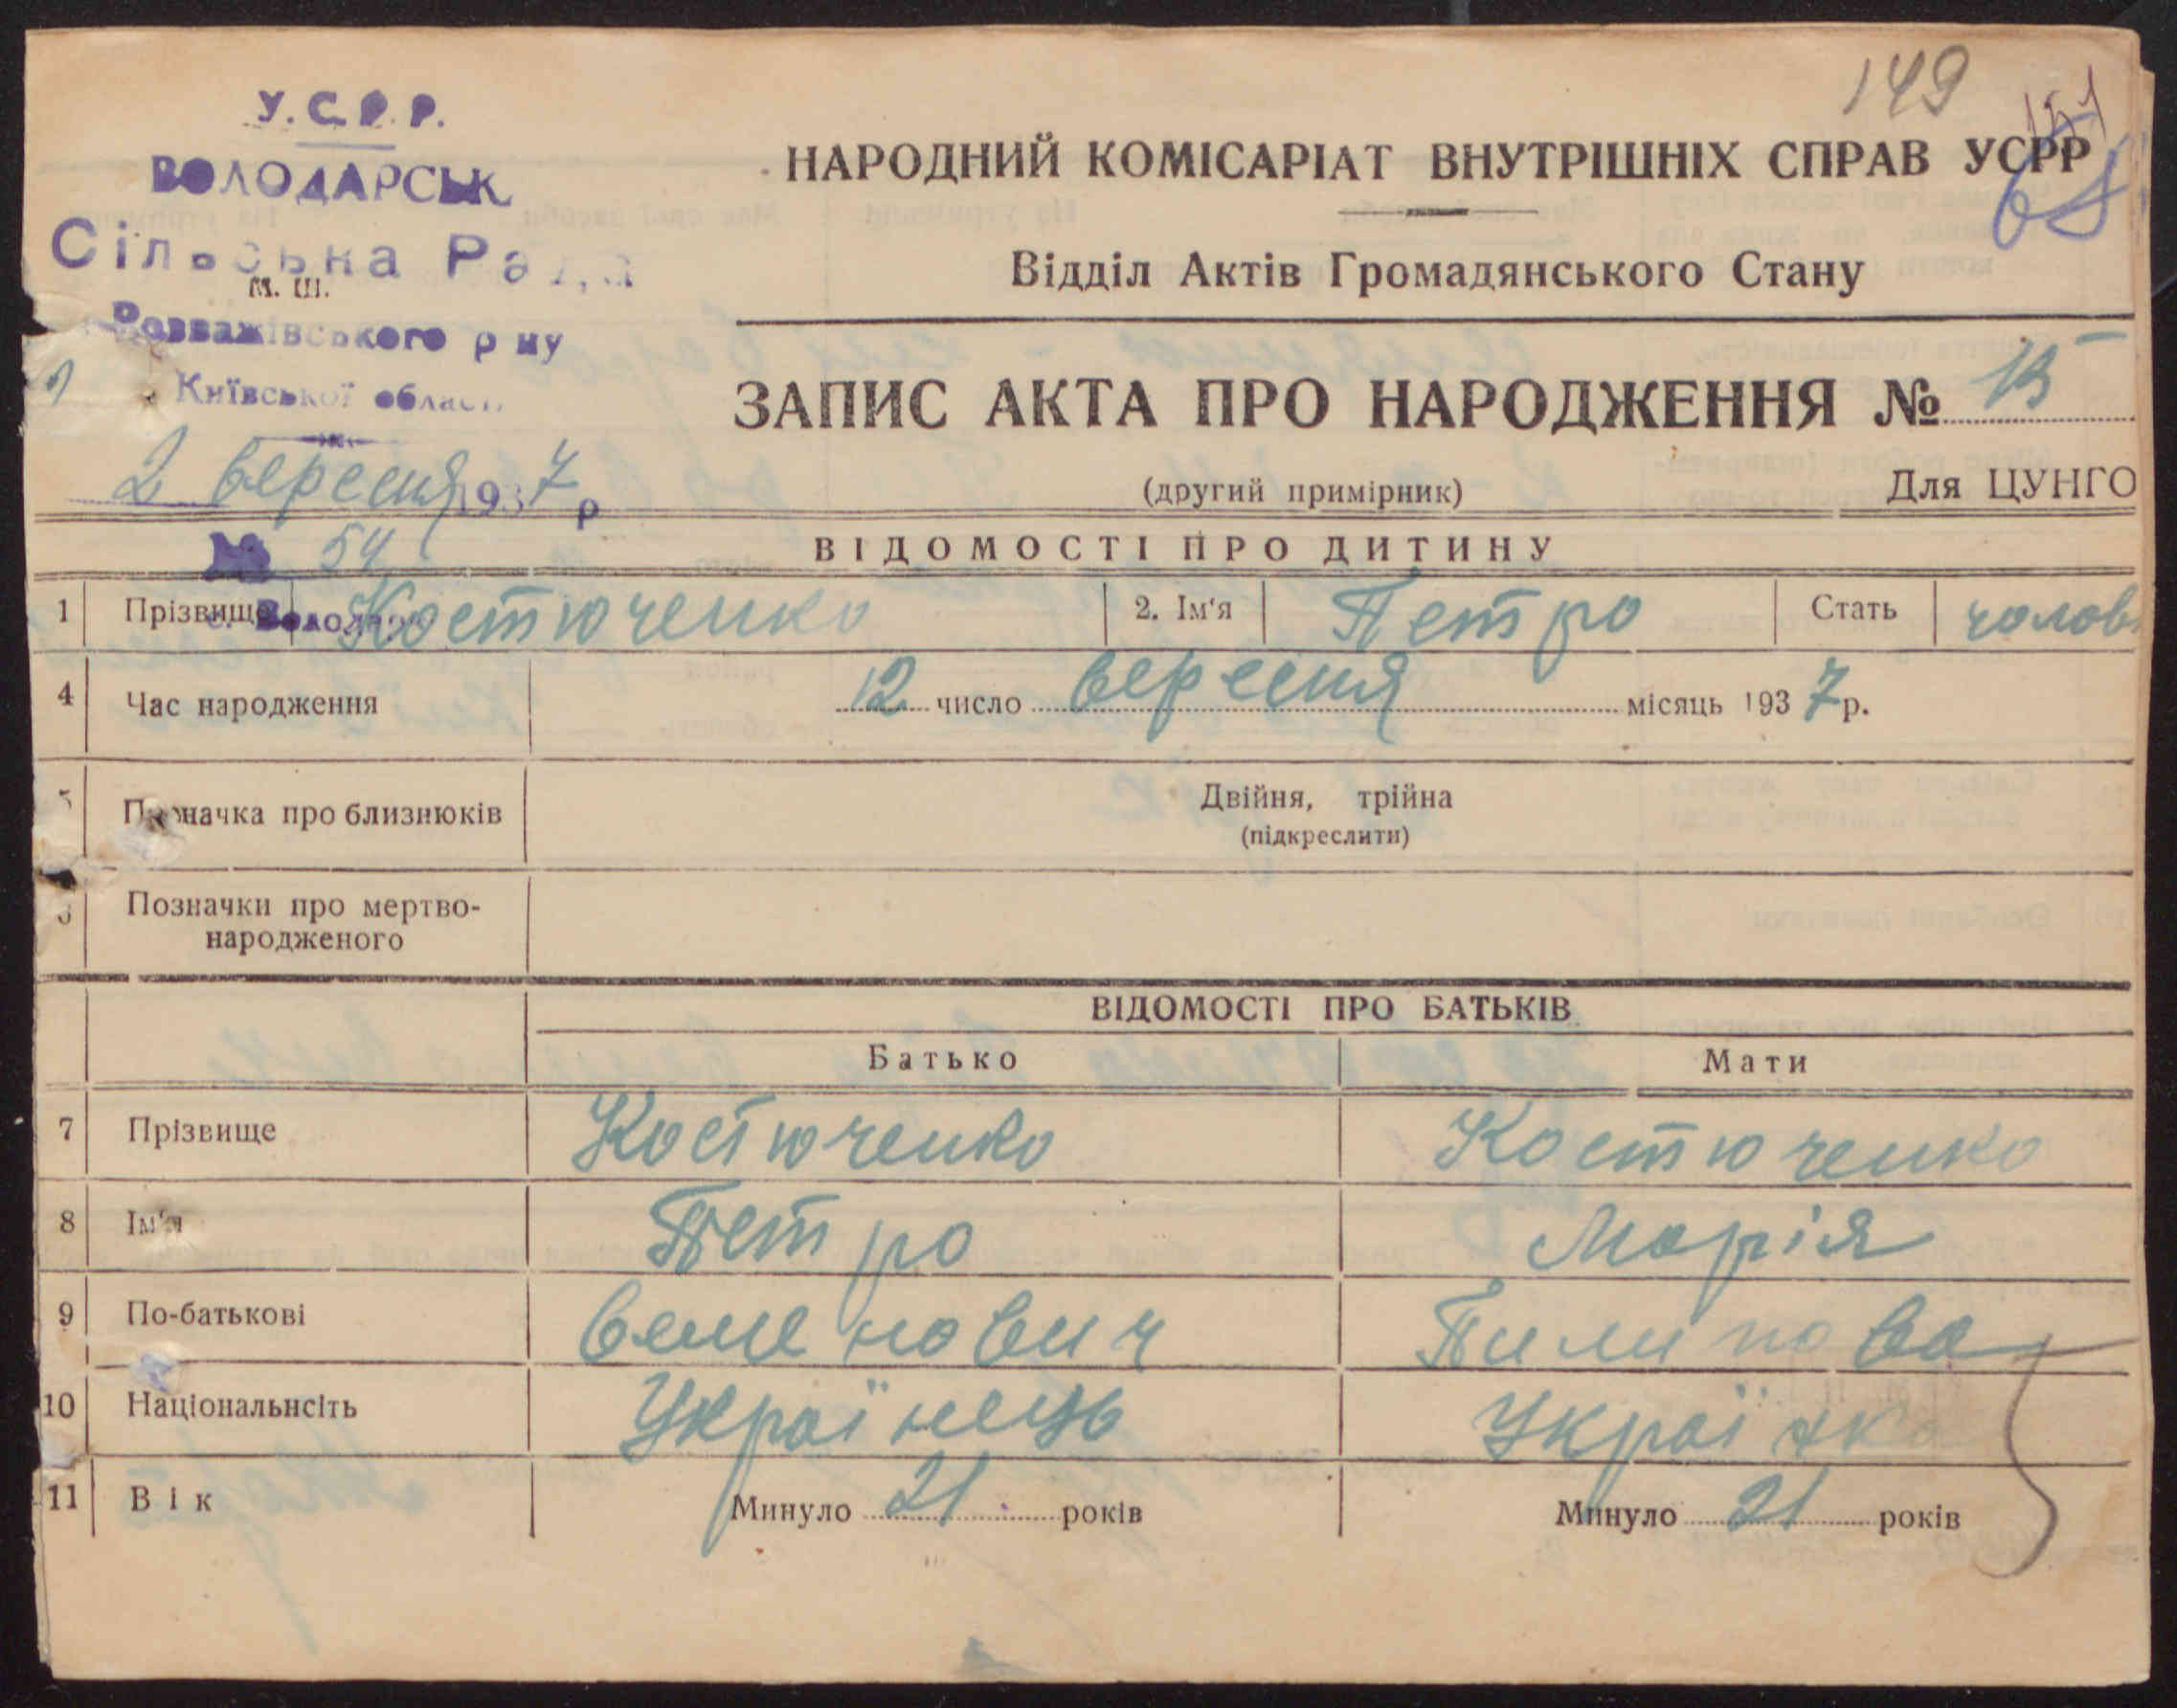 149
151
68
У.С.Р.Р.
ВОЛОДАРСЬК
Сільська Рада
м. ш.
Розважівського р ну
Київської області
2 вересня 1937 р
№ 54
с. Володарськ
НАРОДНИЙ КОМІСАРІАТ ВНУТРІШНІХ СПРАВ УСРР
Відділ Актів Громадянського Стану
ЗАПИС АКТА ПРО НАРОДЖЕННЯ № 15
(другий примірник)
Для ЦУНГО
ВІДОМОСТІ ПРО ДИТИНУ
1 Прізвище Костюченко 2. Ім'я Петро Стать чолов
4 Час народження 12 число вересня місяць 1937 р.
5 Позначка про близнюків Двійня, трійна
(підкреслити)
6 Позначки про мертво-
народженого
ВІДОМОСТІ ПРО БАТЬКІВ
Батько Мати
7 Прізвище Костюченко Костюченко
8 Ім'я Петро Марія
9 По-батькові Семенович Пилипова
10 Національнсіть Українець Українка
11 Вік Минуло 21 років Минуло 21 років